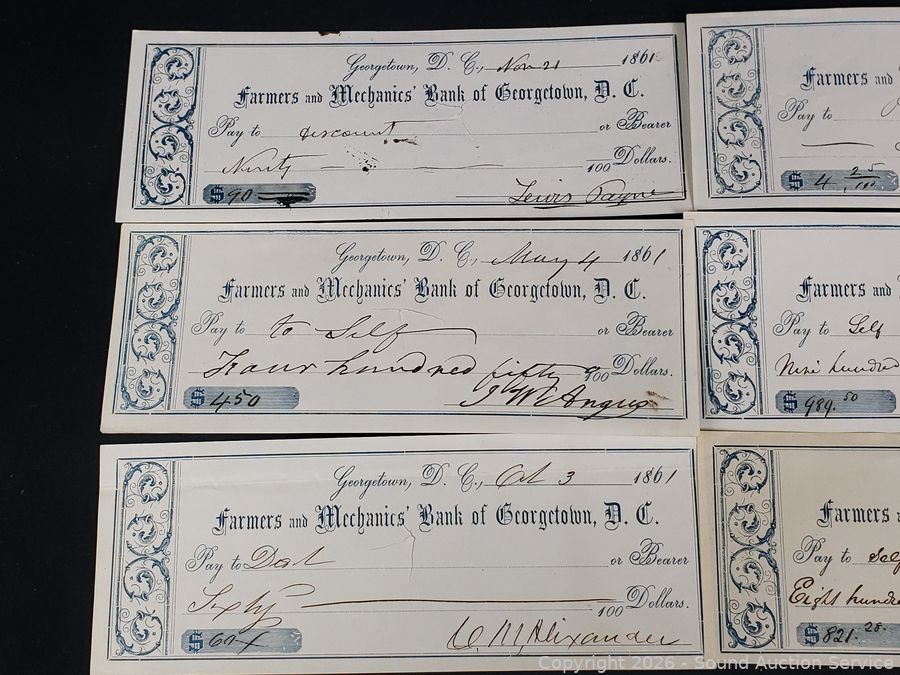 Georgetown, D. C., Nov 21 1861
Farmers and Mechanics' Bank of Georgetown, D. C.
Pay to discount or Bearer
Ninety 100 Dollars.
$ 90
Lewis Payne
Georgetown, D. C., May 4 1861
Farmers and Mechanics' Bank of Georgetown, D. C.
Pay to to Self or Bearer
Four hundred fifty 100 Dollars.
$ 450
Angus
Georgetown, D. C., Oct 3 1861
Farmers and Mechanics' Bank of Georgetown, D. C.
Pay to or Bearer
Sixty 100 Dollars.
$ 60
C M Alexander
Farmers and
Pay to
$ 4 25/100
Farmers and
Pay to Self
Nine hundred
$ 989.50
Farmers
Pay to Self
Eight hundre
$ 821.28
Copyright 2026 - Sound Auction Service